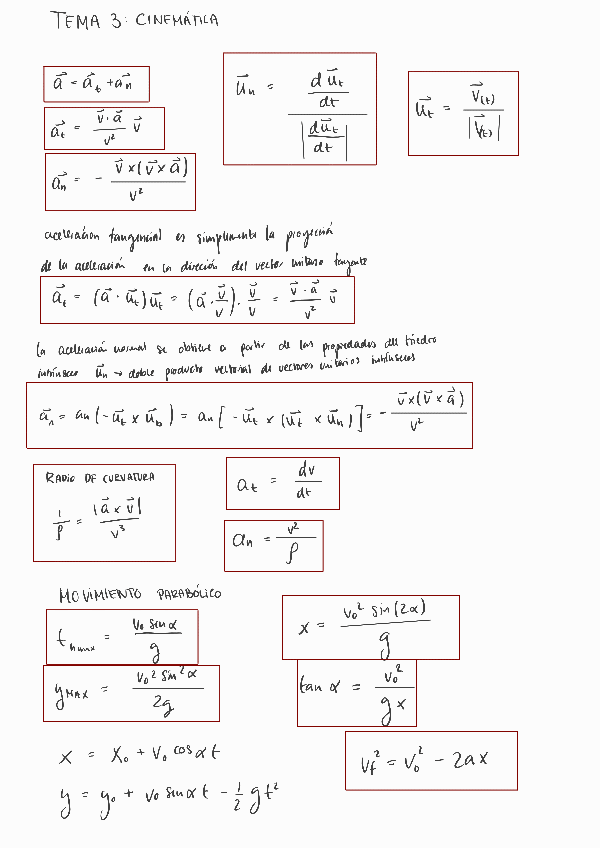 TEMA 3: CINEMÁTICA
a⃗ = a⃗t + a⃗n
a⃗t = (v⃗ · a⃗ / v²) v⃗
a⃗n = - v⃗ × (v⃗ × a⃗) / v²
u⃗n = (d u⃗t / dt) / |d u⃗t / dt|
u⃗t = v⃗(t) / |v⃗(t)|
aceleración tangencial es simplemente la proyección
de la aceleración en la direción del vector unitario tangente
a⃗t = (a⃗ · u⃗t) u⃗t = (a⃗ · v⃗/v) · v⃗/v = (v⃗ · a⃗ / v²) v⃗
la aceleración normal se obtiene a partir de las propiedades del triedro
intrínseco u⃗n → doble producto vectorial de vectores unitarios intrínsecos
a⃗n = an (-u⃗t × u⃗b) = an [-u⃗t × (u⃗t × u⃗n)] = - v⃗ × (v⃗ × a⃗) / v²
RADIO DE CURVATURA
1/ρ = |a⃗ × v⃗| / v³
at = dv/dt
an = v²/ρ
MOVIMIENTO PARABÓLICO
t hmax = v₀ sin α / g
yMAX = v₀² sin² α / 2g
x = v₀² sin(2α) / g
tan α = v₀² / g x
x = x₀ + v₀ cos α t
y = y₀ + v₀ sin α t - 1/2 g t²
vf² = v₀² - 2ax